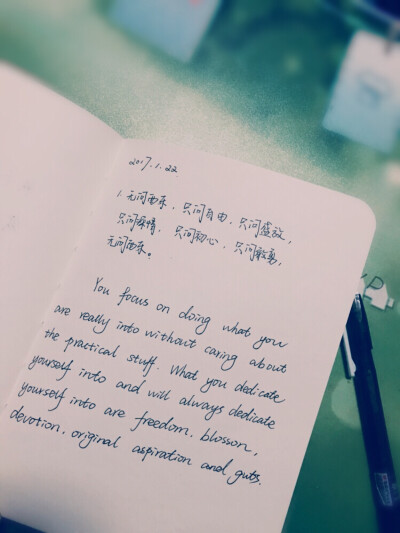 2017.1.22
1. 无问西东，只问自由，只问盛放，
只问深情，只问初心，只问敢勇，
无问西东。
You focus on doing what you
are really into without caring about
the practical stuff. What you dedicate
yourself into and will always dedicate
yourself into are freedom, blosson,
devotion, original aspiration and guts.